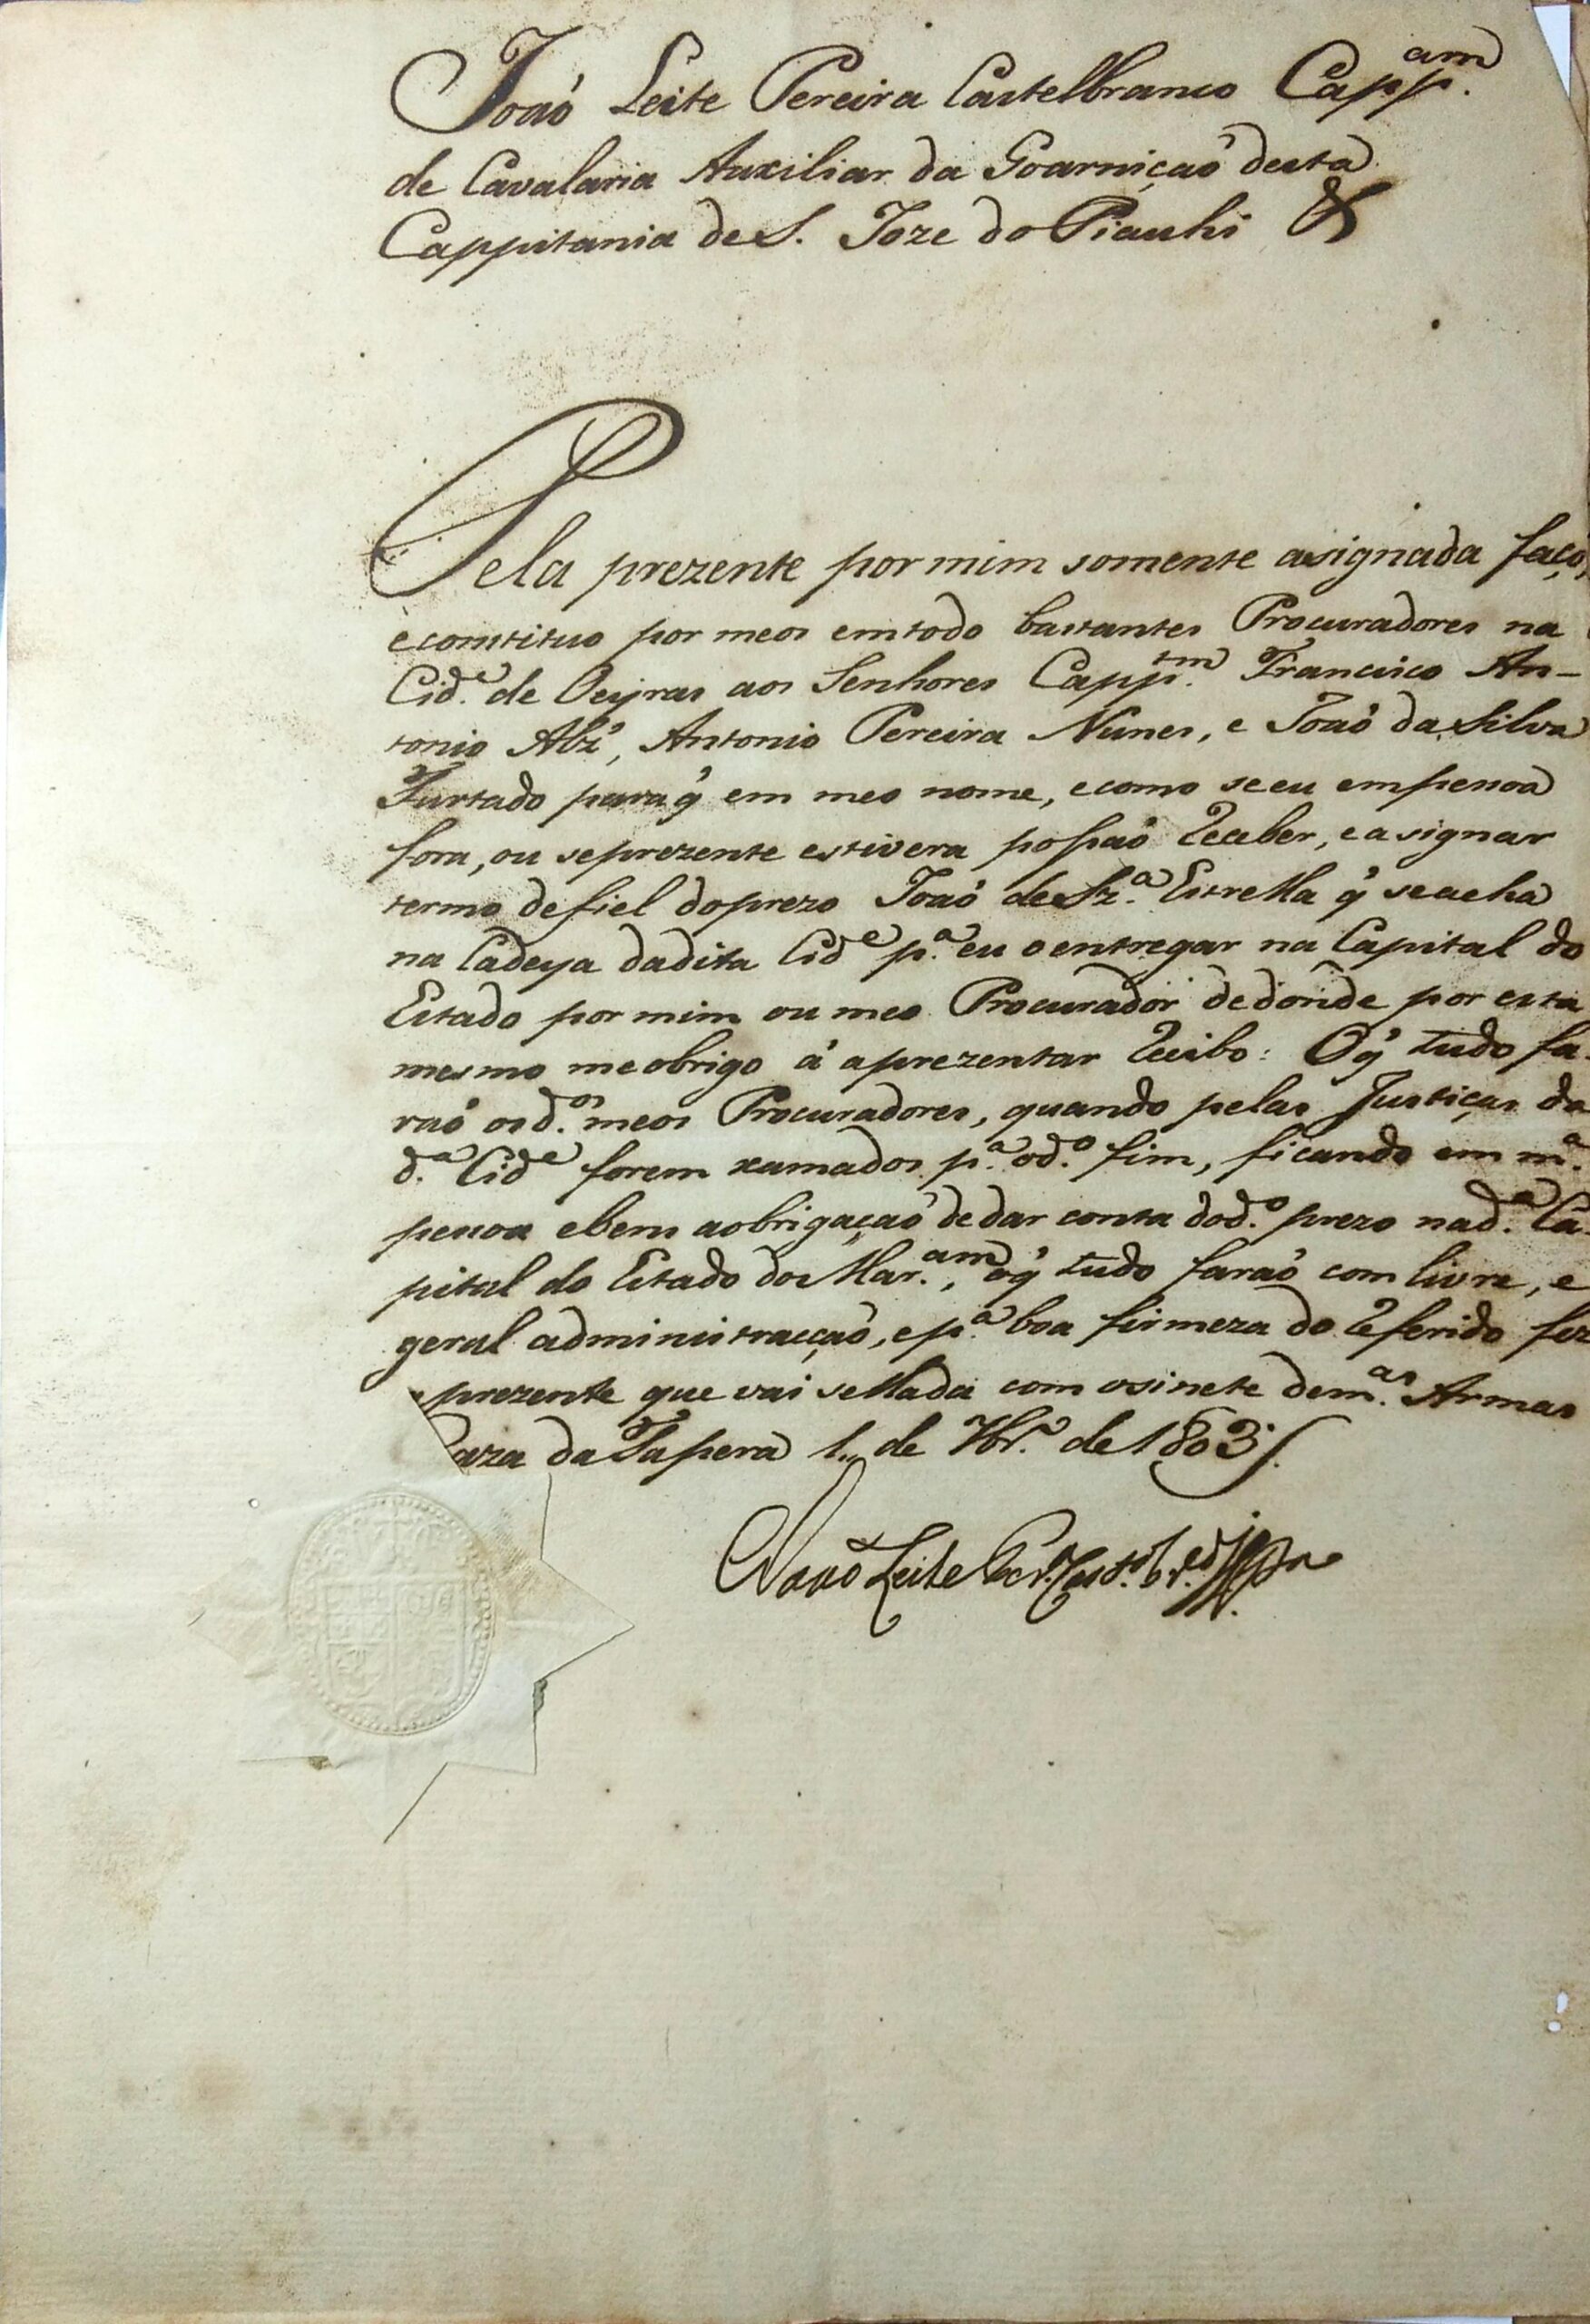 João Leite Pereira Castelbranco Capp.am
de Cavalaria Auxiliar da Goarnição desta
Cappitania de S. Joze do Piauhi &
Pela prezente por mim somente asignada faço,
e constituo por meos em todo bastantes Procuradores na
Cid.e de Oeyras aos Senhores Capp.tm Francisco An-
tonio Abz', Antonio Pereira Nunes, e João da Silva
Furtado para q̃ em meo nome, e como se eu em pesoa
fora, ou se prezente estivera posão Receber, e asignar
termo de fiel do prezo João de Sz.a Estrella q̃ se acha
na Cadeya da dita Cid.e p.a eu o entregar na Capital do
Estado por mim ou meo Procurador dedonde por esta
mesmo me obrigo á aprezentar Recibo: O q̃ tudo fa-
rão os d.os meos Procuradores, quando pelas Justiças da
d.a Cid.e forem xamados p.a o d.o fim, ficando em m.a
pesoa e bens a obrigação de dar conta do d.o prezo na d.a Ca-
pital do Estado do Mar.am, o q̃ tudo farão com livre, e
geral administracção, e p.a boa firmeza do Referido fez
prezente que vai sellada com o sinete de m.as Armas
aza da Tapera 1,, de 7br.o de 1803
João Leite Per.a Cast.o br.co